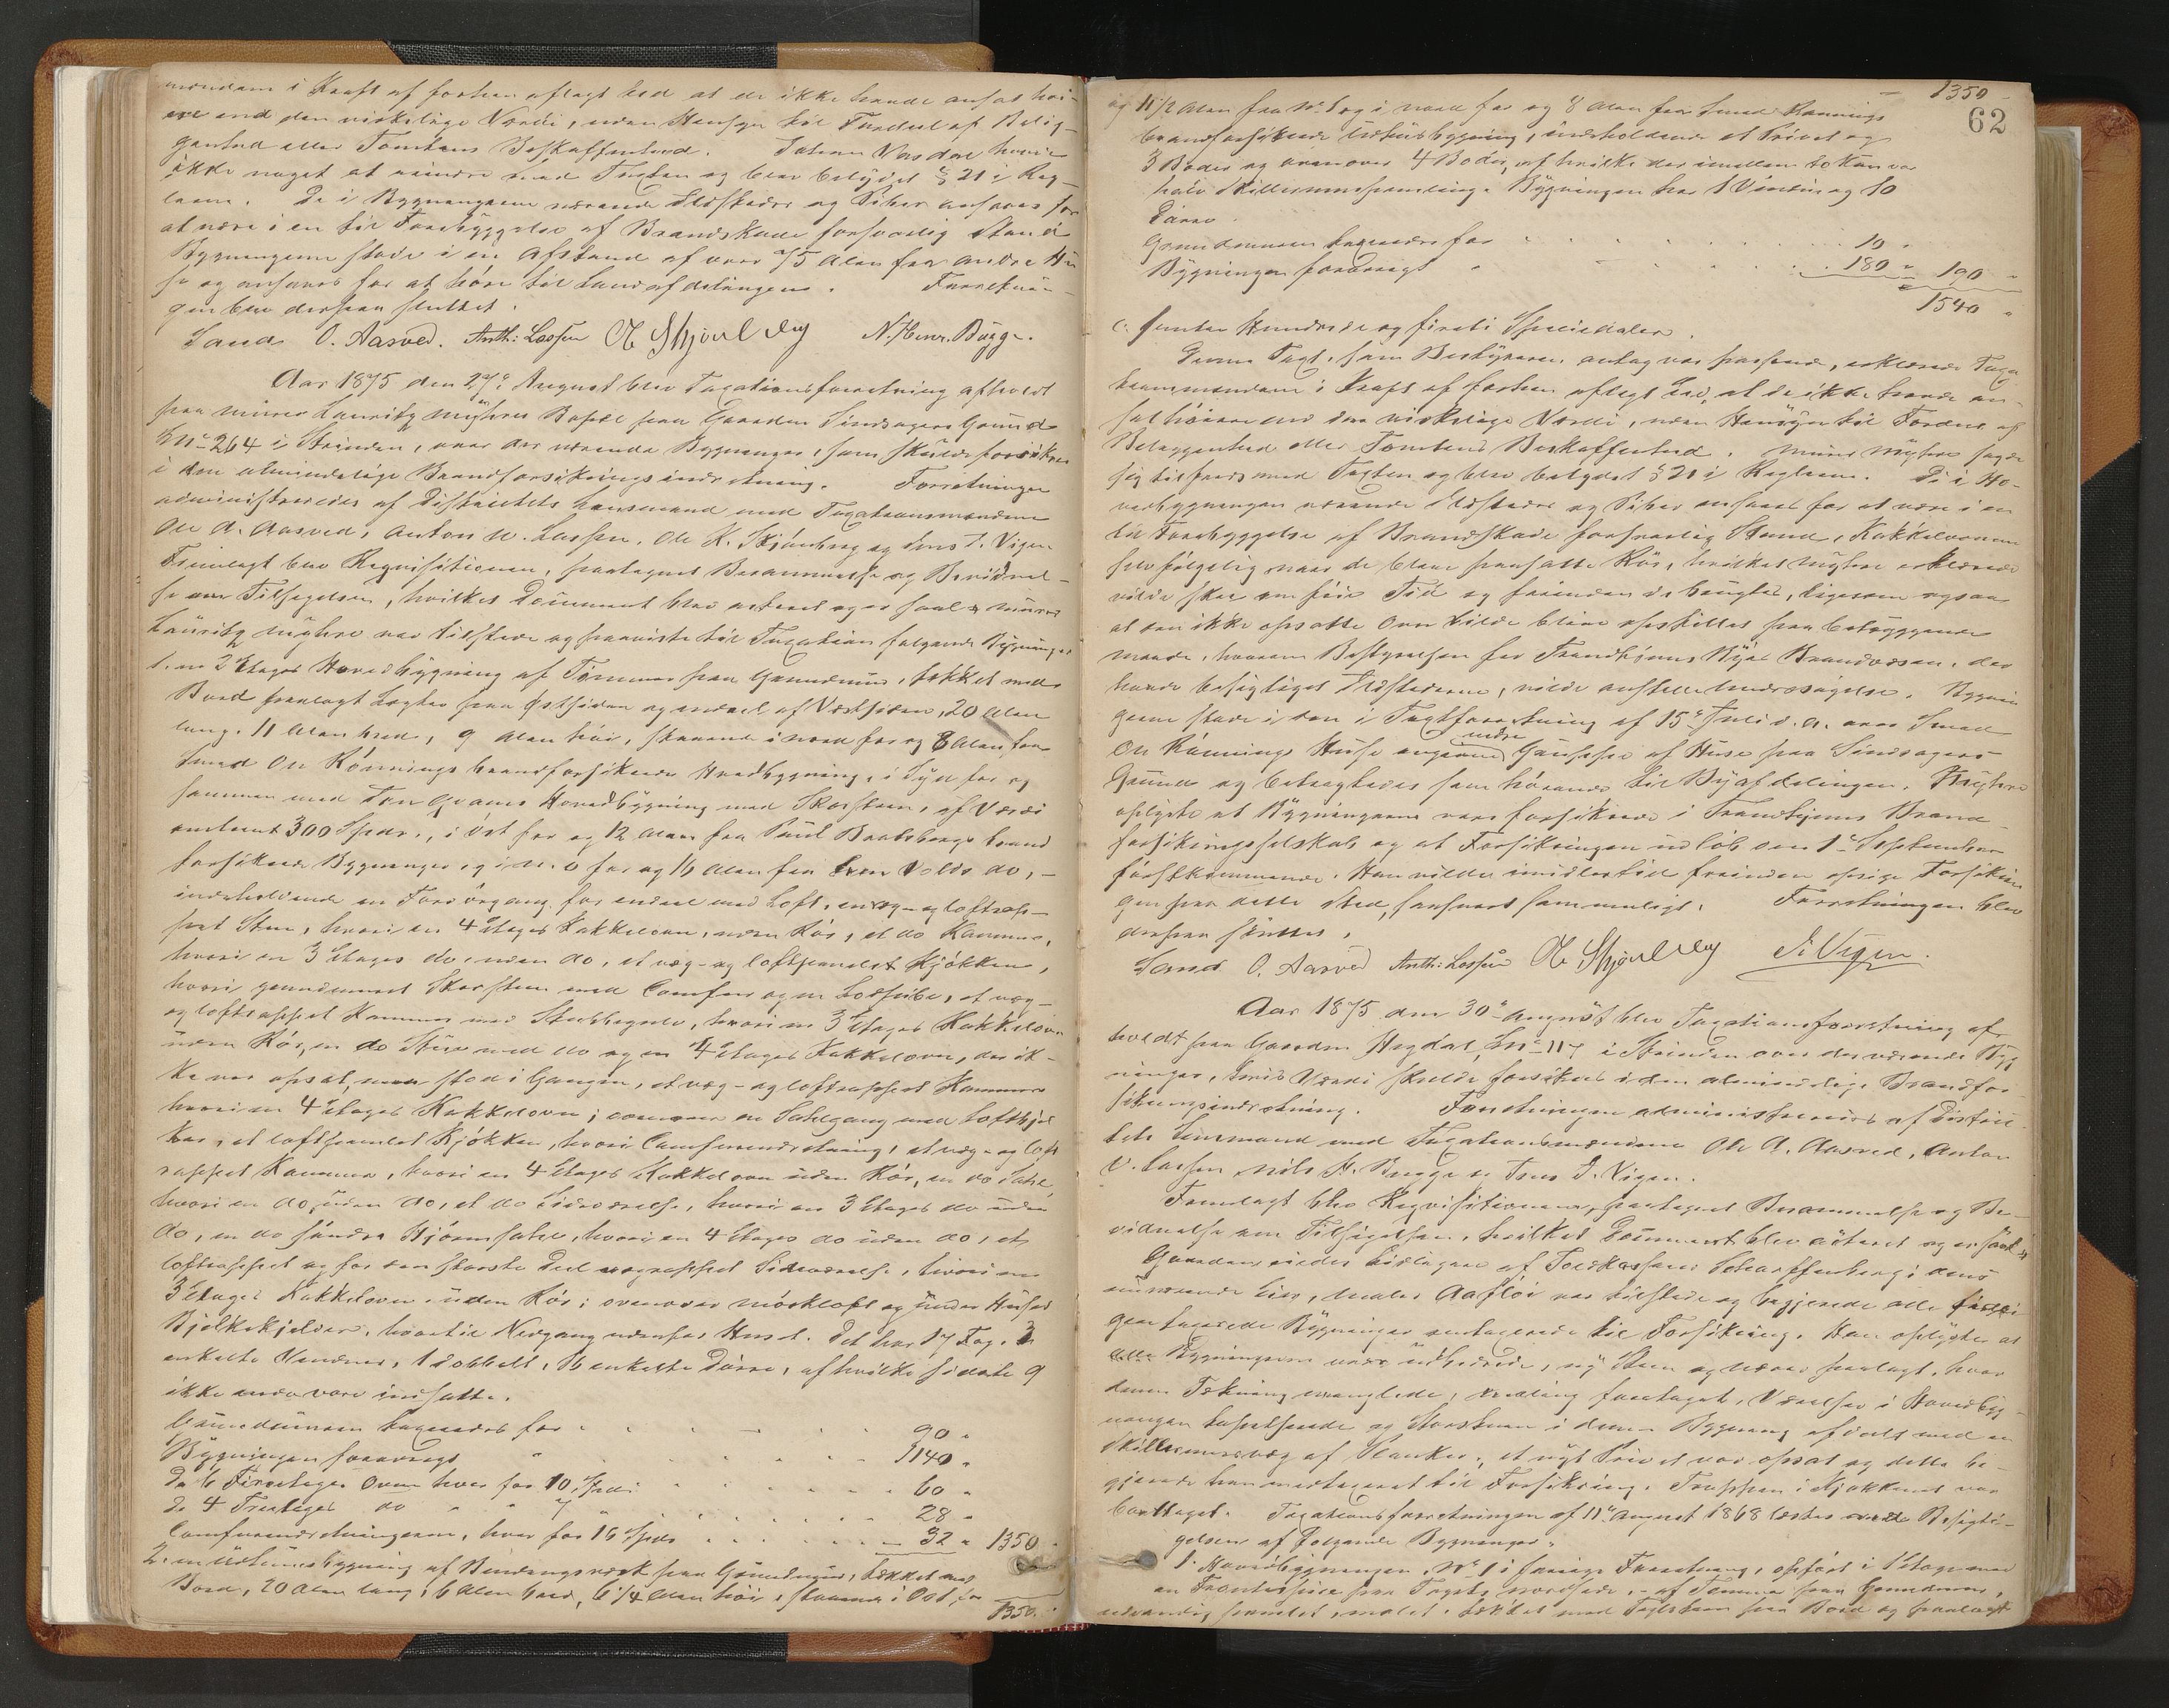 mændene i Kraft af forhen aflagt Eed at de ikke havde ansat høi-
ere end den virkelige Værdi, uden Hensyn til Fordeel af Belig-
genhed eller Tomtens Beskaffenhed. Johan Vasdal havde
ikke noget at erindre mod Taxten og blev betydet § 21 i Reg-
lerne. De i Bygningerne værende Ildsteder og Piber ansaaes for
at være i en til Forebyggelse af Brandskade forsvarlig Stand
Bygningerne stode i en Afstand af over 75 Alen fra andre Hu-
se og ansaaes for at høre til Landafdelingen. Forretnin-
gen blev derpaa sluttet.
Sand O. Aasved. Anth: Lassen O K Skjønberg N. Henr. Bügge.
Aar 1875 den 27de August blev Taxationsforretning afholdt
paa Murer Lauritz Myhres Bopæl paa Gaarden Lindsagers Grund
L No 264 i Strinden, over der værende Bygninger, som skulde forsikres
i den almindelige Brandforsikringsindretning. Forretningen
administreredes af Distriktets Lensmand med Taxationsmændene
Ole A. Aasved, Anton W. Lassen, Ole K. Skjønberg og Jens J. Vigen.
Fremlagt blev Requisitionen, paategnet Berammelse og Bevidnel-
se om Tilsigelsen, hvilket Document blev acteret og er saal. Murer
Lauritz Myhre var tilstede og paaviste til Taxation følgende Bygninger
1. en 2 Etages Hovedbygning af Tømmer paa Grundmuur, tækket med
Bord paalagt Lægter paa Østsiden og endeel af Vestsiden, 20 Alen
lang, 11 Alen bred, 9 Alen høi, staaende i nord for og 8 Alen fra
Smed Ole Rønnings brandforsikrede Hovedbygning, i Syd for og
sammen med Tore Qvams Hovedbygning med Skorsteen, af Værdi
omtrent 300 Spdr., i Øst for og 12 Alen fra Paul Bratsbergs brand
forsikrede Bygninger og i for og 16 Alen fra Volds do,
indeholdende en Forsørgang for endeel med Loft, en væg- og loftrap-
pet Stue, hvori en 4 Etages Kakkelovn, uden Rør, et do Kammer,
hvori en 3 Etages do uden do, et væg- og loftpanelet Kjøkken,
hvori grundmuret Skorsteen med Comfur og en Lodpibe, et væg-
og loftrappet Kammer med hvori en 3 Etages Kakkelovn
uden Rør, en do Stue med do og en 4 Etages Kakkelovn, der ik-
ke var opsat, men stod i Gangen, et væg- og loftrappet Kammer
hvori en 4 Etages Kakkelovn; ovenover en Salsgang med Loftbjel
ker, et loftpanelet Kjøkken, hvori Comfurindretning, et væg- og loft
rappet Kammer, hvori en 4 Etages Kakkelovn uden Rør, en do Sahl,
hvori en do uden do, et do Sideværelse, hvori en 3 Etages do uden
do, en do søndre Hjørnesahl, hvori en 4 Etages do uden do, et
loftrappet og for den største Deel vægrappet Sideværelse, hvori en
3 Etages Kakkelovn uden Rør; ovenover mørkloft og under Huset
Bjelkekjelder, hvortil Nedgang udenfor Huset. Det har 17 Fag. 3
enkelte Vinduer, 1 dobbelt, 16 enkelte Dørre, af hvilke sidste 9
ikke endnu vare indsatte.
Grundmuren taxeredes for 90 „
Bygningen forøvrigt „ 1140 „
De 6 Fireetages Ovne hver for 10 Spdr. 60 „
De 4 Treetages do „ „ 7 „ 28 „
Comfurindretningerne, hver for 16 Spdr 32 „ 1350
2. en Udhuusbygning af Bindingsværk paa Grundmuur, tækket med
Bord, 20 Alen lang, 6 Alen bred, 6 1/4 Alen høi, staaende i Øst for
1350.
1350
62
og 11 1/2 Alen fra No 1 og i nord for og 8 Alen fra Smed Rønnings
brandforsikrede Udhuusbygning, indeholdende et Privet og
3 Boder og ovenover 4 Boder, af hvilke der imellem to kun var
halv Skillerumspaneling. Bygningen har 1 Vindue og 10
Dørre.
Grundmuren taxeredes for 10 „
Bygningen forøvrigt „ 180 „ 190 „
1540 „
e: femten Hundrede og firti Speciedaler.
Denne Taxt, som Bestyreren antog var passende, erklærede Taxa
tionsmændene i Kraft af forhen aflagt Eed, at de ikke havde an-
sat høiere end den virkelige Værdi, uden Hensyn til Fordeel af
Beliggenhed eller Tomtens Beskaffenhed. Murer Myhre sagde
sig tilfreds med Taxten og blev betydet § 21 i Reglerne. De i Ho-
vedbygningen værende Ildsteder og Piber ansaaes for at være i en
til Forebyggelse af Brandskade forsvarlig Stand, Kakkelovnene
selvfølgelig naar de bleve paasatte Rør, hvilket Myhre erklærede
vilde skee om føie Tid og forinden de benyttes, ligesom ogsaa
at den ikke opsatte Ovn vilde blive opstillet paa betryggende
maade, hvorom Bestyrelsen for Trondhjems Byes Brandvæsen, der
havde besigtiget Ildstederne, vilde anstille Undersøgelse. Bygnin
gerne stode i den i Taxtforretning af 15de Juli d. A. over Smed
Ole Rønnings Huse angivne nedre Gruppe af Huse paa Lindsagers
Grund og betragtedes som hørende til Byafdelingen. Myhre
oplyste at Bygningerne vare forsikrede i Trondhjems Brand-
forsikringsselskab og at Forsikringen udløb den 1ste September
førstkommende. Han vilde imidlertid forinden opsige Forsikrin
gen paa dette Sted, saasnart som muligt. Forretningen blev
derpaa sluttet.
Sand O. Aasved Anth: Lassen O K Skjønberg J. Vigen.
Aar 1875 den 30te August blev Taxationsforretning af-
holdt paa Gaarden Hegdal, L No 117 i Strinden over der værende Byg
ninger, hvis Værdi skulde forsikres i den almindelige Brandfor-
sikringsindretning. Forretningen administreredes af Distrik-
tets Lensmand med Taxationsmændene Ole A. Aasved, Anton
W. Lassen, Nils H. Bugge og Jens J. Vigen.
Fremlagt blev Requisitionen, paategnet Berammelse og Be-
vidnelse om Tilsigelsen, hvilket Document blev acteret og er saal.
Gaarden eiedes tidligere af Toldkasserer Scharffenberg; dens
nuværende Eier, Maler Aafløi var tilstede og begjerede alle
gen taxerede Bygninger omtaxerede til Forsikring. Han oplyste at
alle Bygningerne vare udbedrede, ny Steen og Næver paalagt, hvor
denne Tækning manglede, maling foretaget, Værelser i Hovedbyg-
ningen tapetserede og Storstuen i denne Bygning afdeelt med en
Skillerumsvæg af Planker; et nyt Privet var opsat og dette be-
gjerede han medtaget til Forsikring. Trappen i Kjøkkenet var
borttaget. Taxationsforretningen af 11te August 1868 læstes ved Besigti-
gelsen af følgende Bygninger.
1. Hovedbygningen, No 1 i forrige Forretning, opført i 1 Etage med
en Frontespice paa Tagets nordside, af Tømmer paa Grundmuur,
udvendig panelet, malet, tækket med Tagsteen paa Bord og paalagt